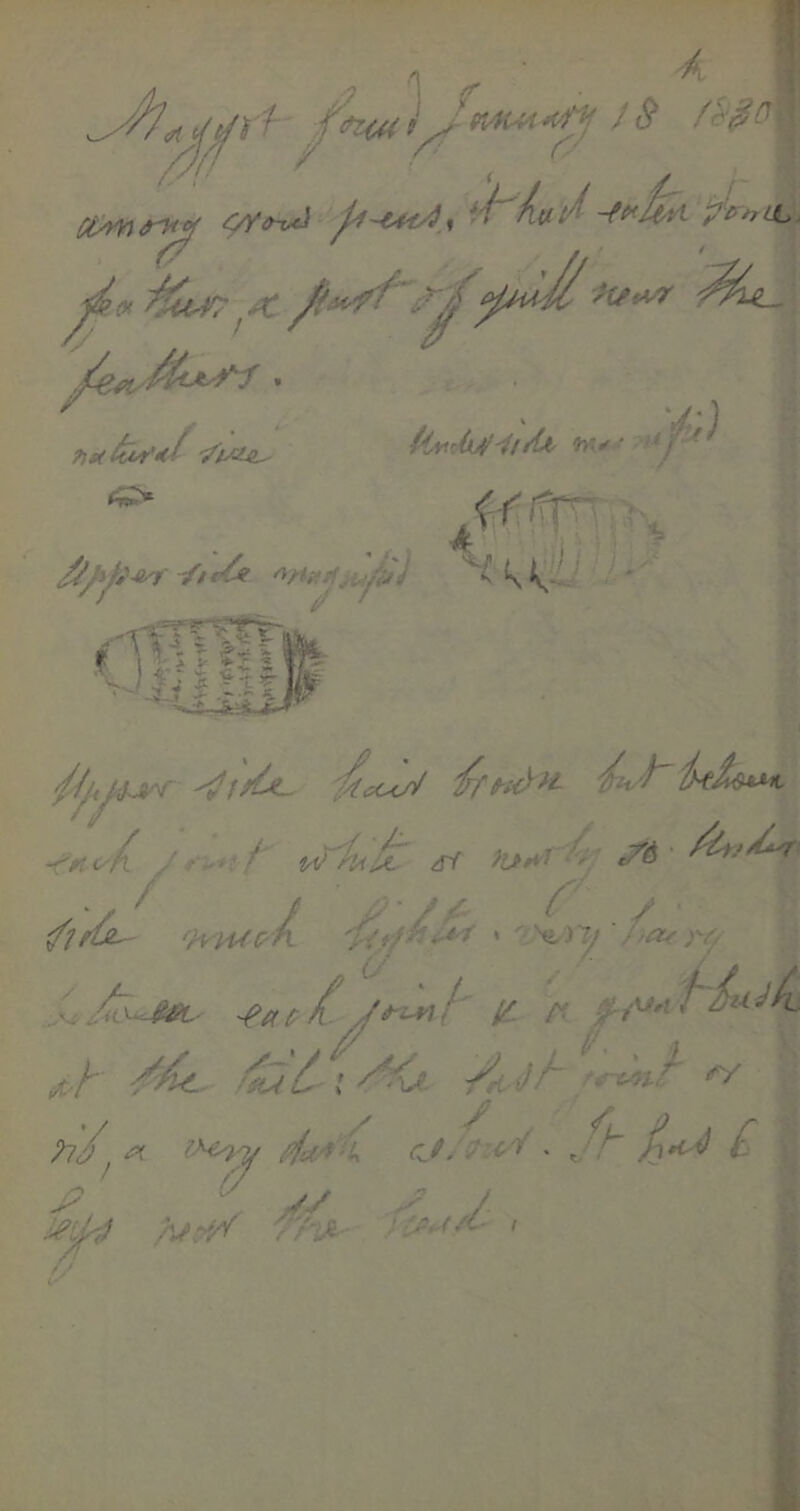 k
Maggot found January 18 1890
among crow pens, it had eaten some
feather, a part of quill near the
feathers.
natural size
Underside magnified
Upper side magnified
Upper side head brown but between
each joint white or nearly so Under
side much lighter. very hairy
between each joint & a great bush
at the tail; the last joint or
rib, a very dark colour. It had 6
legs near the head,